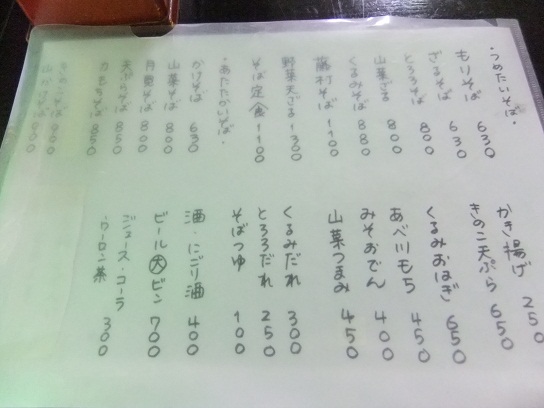 ・つめたいそば・
もりそば 630
ざるそば 630
とろろそば 800
山菜ざる 800
くるみそば 880
藤村そば 1100
野菜天ざる 1300
そば定食 1100
・あたたかいそば・
かけそば 630
山菜そば 800
月見そば 800
天ぷらそば 850
力もちそば 850
900
900
かき揚げ 250
きのこ天ぷら 650
くるみおはぎ 650
あべ川もち 450
みそおでん 400
山菜つまみ 450
くるみだれ 300
とろろだれ 250
そばつゆ 100
酒・にごり酒 400
ビール大ビン 700
ジュース・コーラ
・ウーロン茶 300